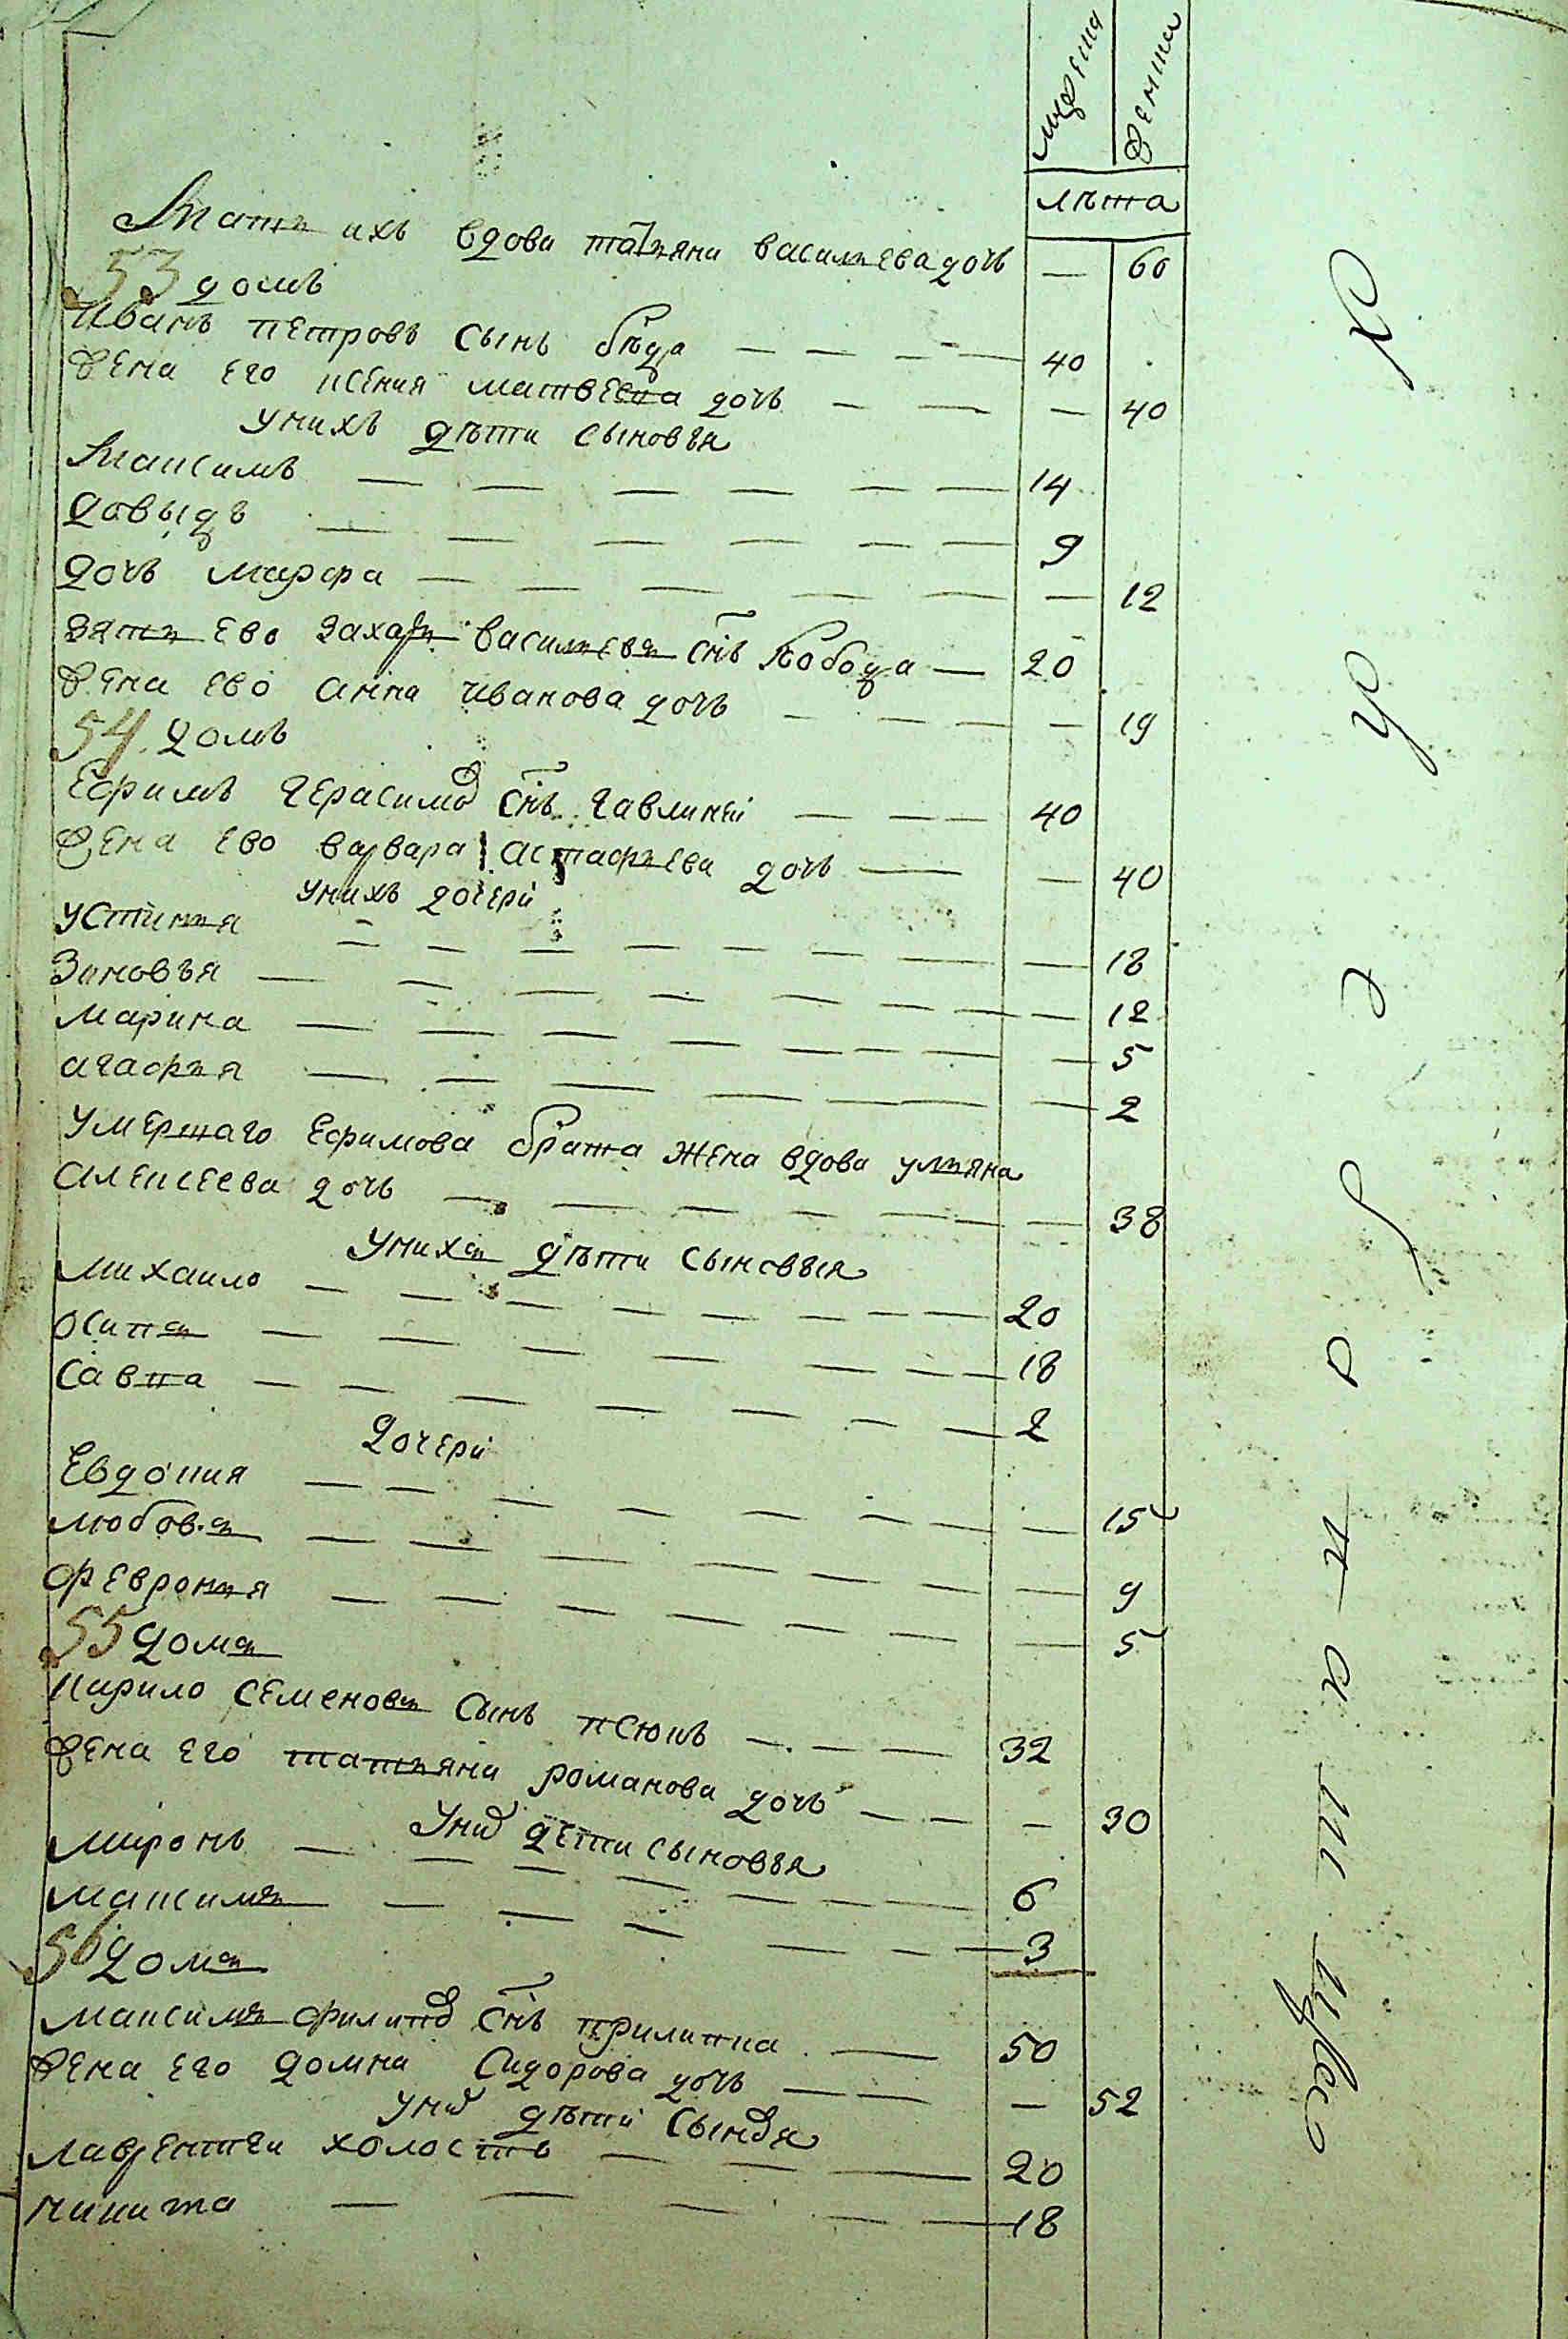 мужеска
женска
лѣта
Мать ихъ вдова татьяна васильева дочь — 60
53 домъ
Иванъ петровъ сынъ бѣда — 40
жена его ксения матвеева дочь — 40
у нихъ дѣти сыновья
Максимъ — 14
довыдъ — 9
дочь марфа — 12
зять ево захарь васильевъ снъ кобоца — 20
жена ево анна иванова дочь — 19
54 домъ
Ефимъ герасимов снъ гавлинеи — 40
жена ево варвара астафьева дочь — 40
у нихъ дочери
устинья — 18
Зиновья — 12
марина — 5
агафья — 2
умершаго Ефимова брата жена вдова ульяна
алексеева дочь — 38
у нихъ дѣти сыновья
михаило — 20
осипъ — 18
савка — 2
дочери
Евдокия — 15
любовъ — 9
февронья — 5
55 домъ
кирило семеновъ сынъ псюкъ — 32
жена его татьяна романова дочь — 30
у них дети сыновья
миронъ — 6
максимъ — 3
56 домъ
максимъ филипов снъ прилипка — 50
жена его домна сидорова дочь — 52
у них дѣти сыновя
лаврентеи холостъ — 20
никита — 18